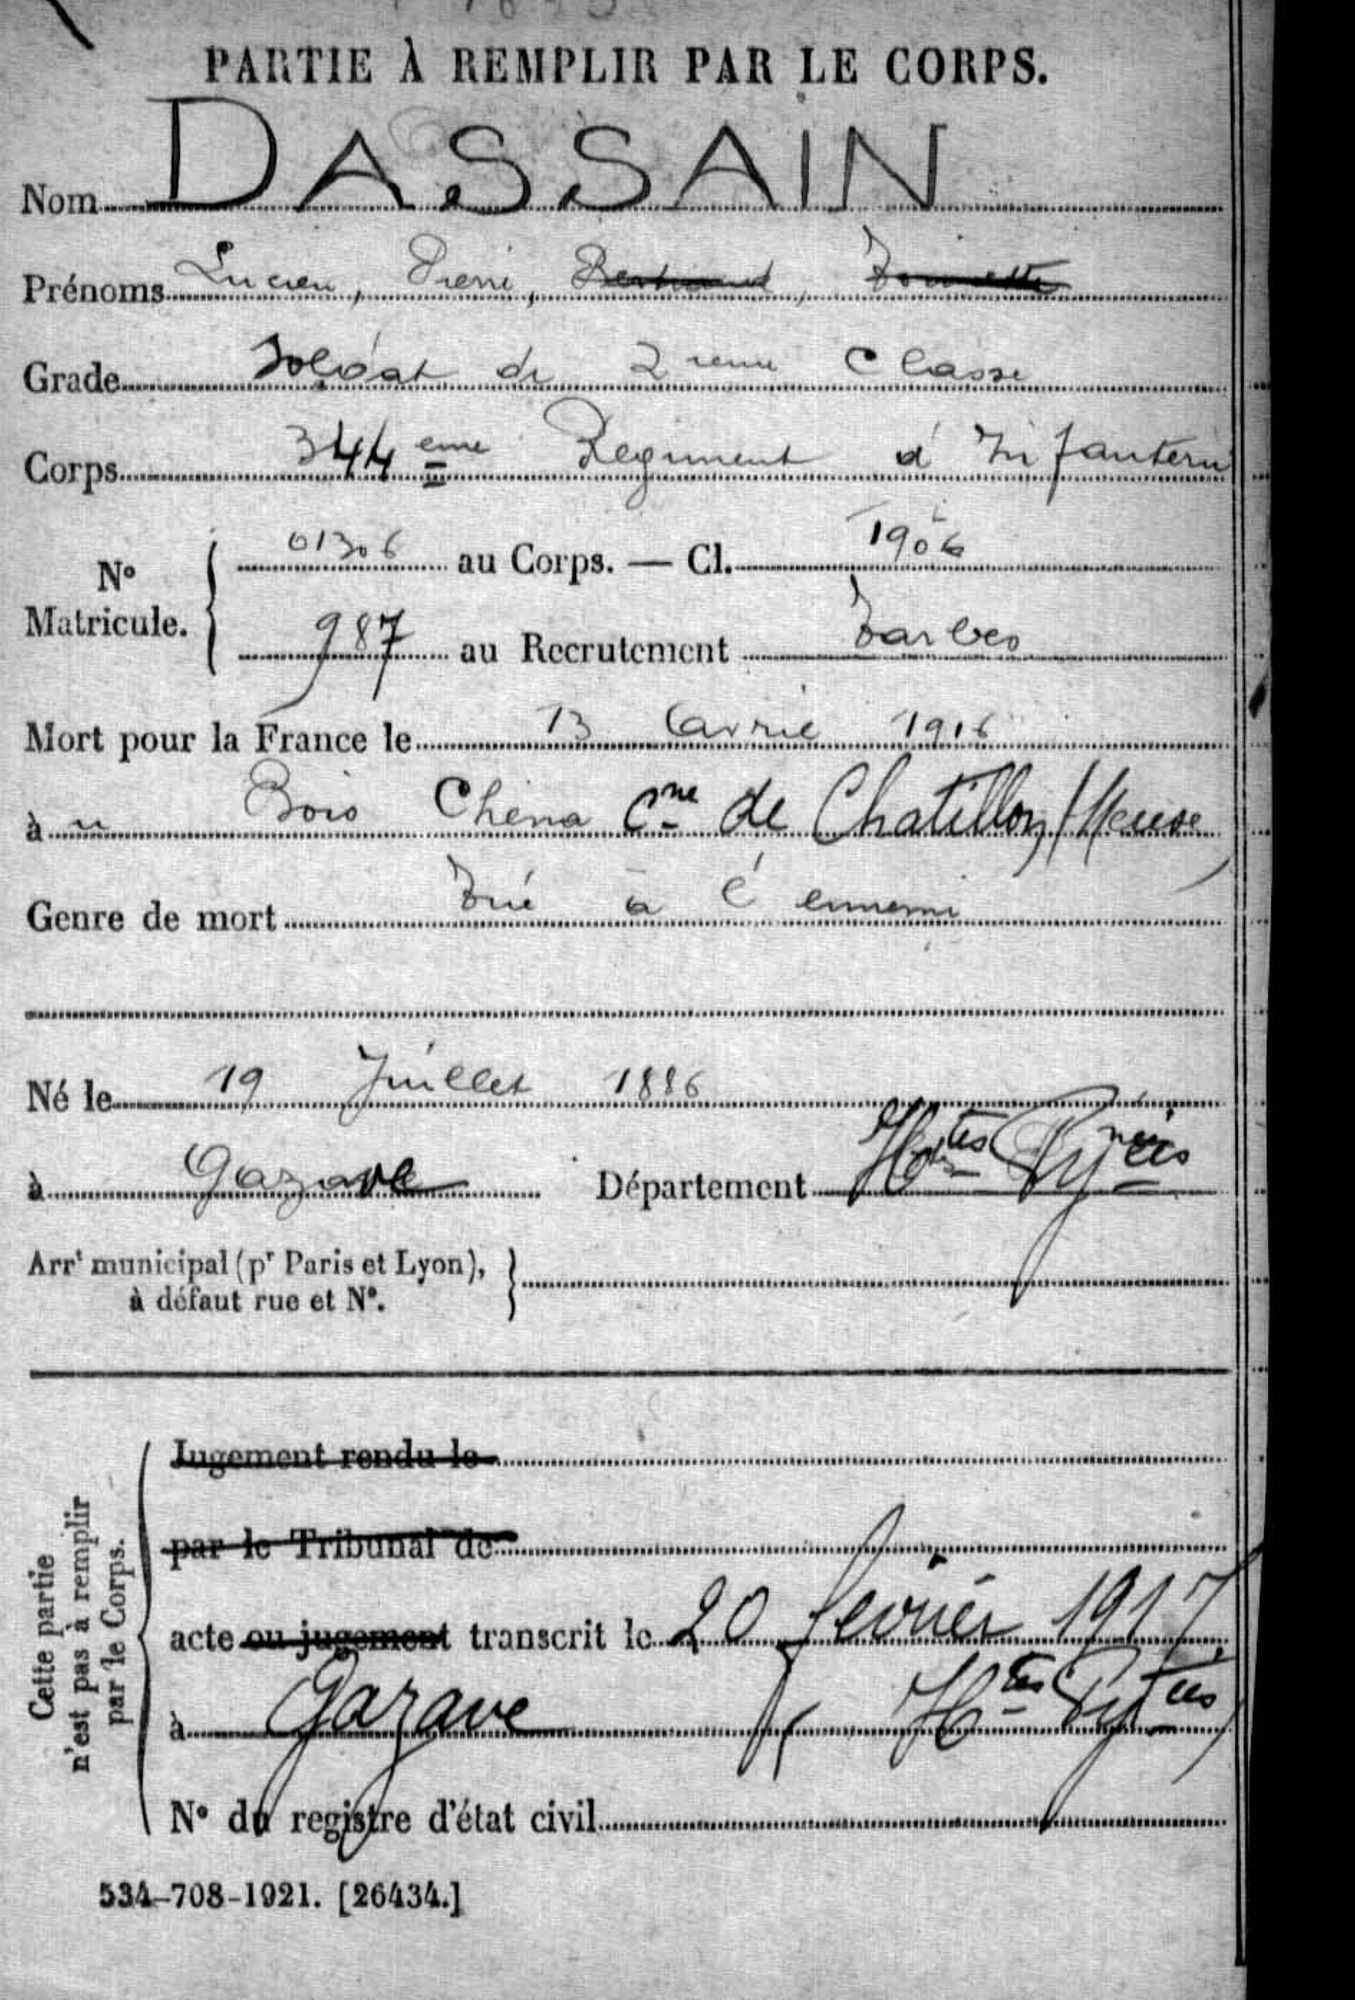 PARTIE À REMPLIR PAR LE CORPS.
Nom DASSAIN
Prénoms Lucien, Pierre, Bertrand,
Grade Soldat de 2ieme Classe
Corps 344eme Regiment d'Infanterie
N° Matricule. 01306 au Corps. — Cl. 1906
987 au Recrutement Tarbes
Mort pour la France le 13 Avril 1916
à Bois Chena Cne de Chatillon / Meuse
Genre de mort Tué à l'ennemi
Né le 19 Juillet 1886
à Gazave Département Htes Pyrnées
Arrt municipal (pr Paris et Lyon),
à défaut rue et N°.
Cette partie
n'est pas à remplir
par le Corps.
Jugement rendu le
par le Tribunal de
acte ou jugement transcrit le 20 février 1917
à Gazave (Htes Pyrées)
N° du registre d'état civil
534-708-1921. [26434.]